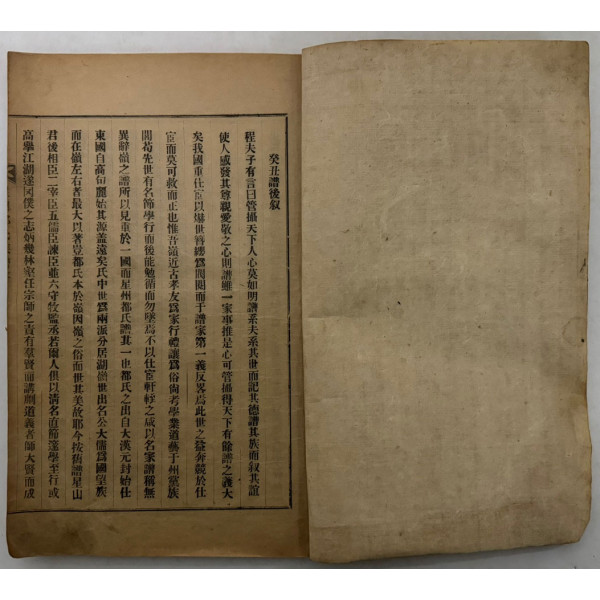 癸丑譜後叙
程夫子有言曰管攝天下人心莫如明譜系夫系其世而記其德譜其族而叙其誼
使人感發其尊親愛敬之心則譜雖一家事推是心可管攝得天下有餘譜之義大
矣我國重仕宦以爆世簪纓爲閥閱而于譜家第一義反畧焉此世之益奔競於仕
宦而莫可救而正也惟吾嶺近古孝友爲家行禮讓爲俗尙考學業道藝于州黨族
閭苟先世有名節學行而後能勉循而勿墜焉不以仕宦軒輊之咸以名家譜稱無
異辭嶺之譜所以見重於一國而星州都氏譜其一也都氏之出自大漢元封始仕
東國自高句麗始其源盖遠矣氏中世爲兩派分居湖嶺世出名公大儒爲國望族
而在嶺左右者最大以著豈都氏本於嶺因嶺之俗而世其美故耶今按舊譜星山
君後相臣二宰臣五儒臣諫臣並六守牧監丞若爾人俱以淸名直節篤學至行或
高擧江湖遂罔僕之志炳幾林壑任宗師之責有羣賢而講劘道義者師大賢而成